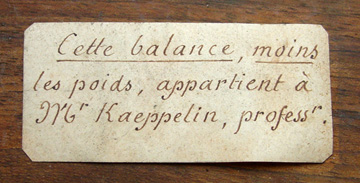 Cette balance, moins
les poids, appartient à
Mr Kaeppelin, professr.